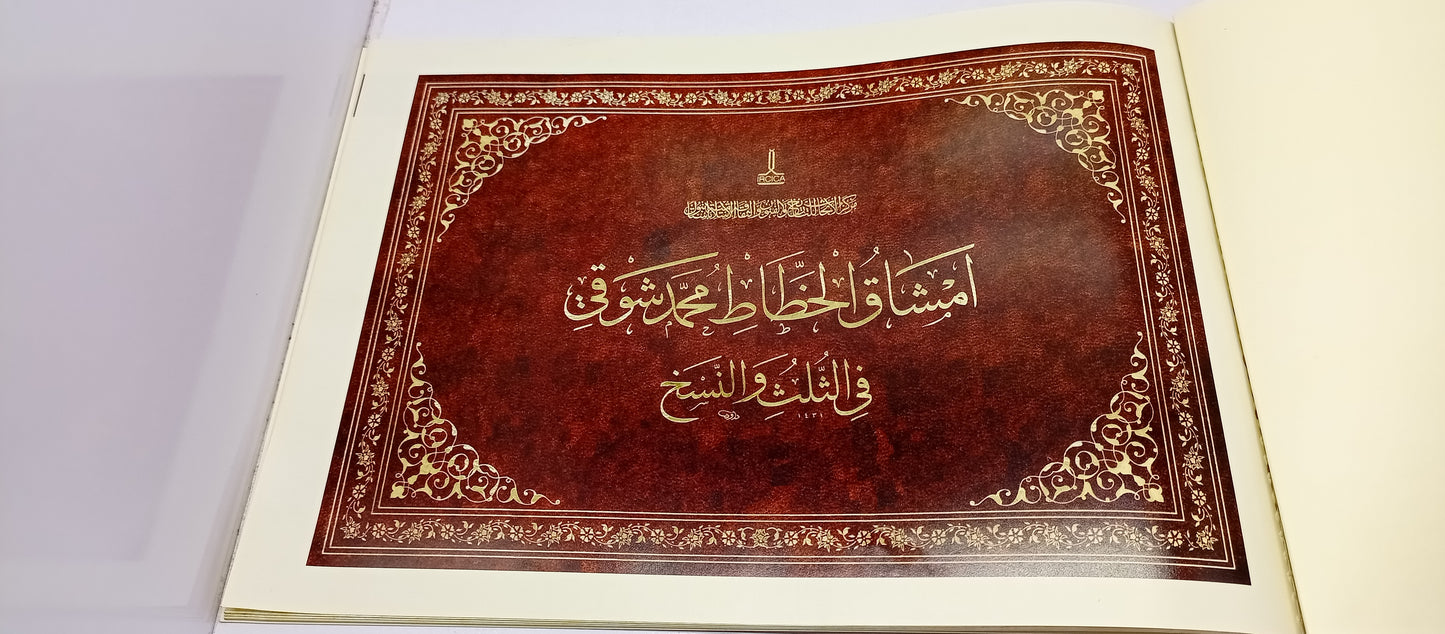 IRCICA
مركز الأبحاث للتاريخ والفنون والثقافة الإسلامية باستانبول
أمشاق الخطّاط محمّد شوقي
في الثّلث والنّسخ
١٤٣١